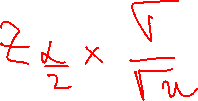 Z α/2 × √/√n